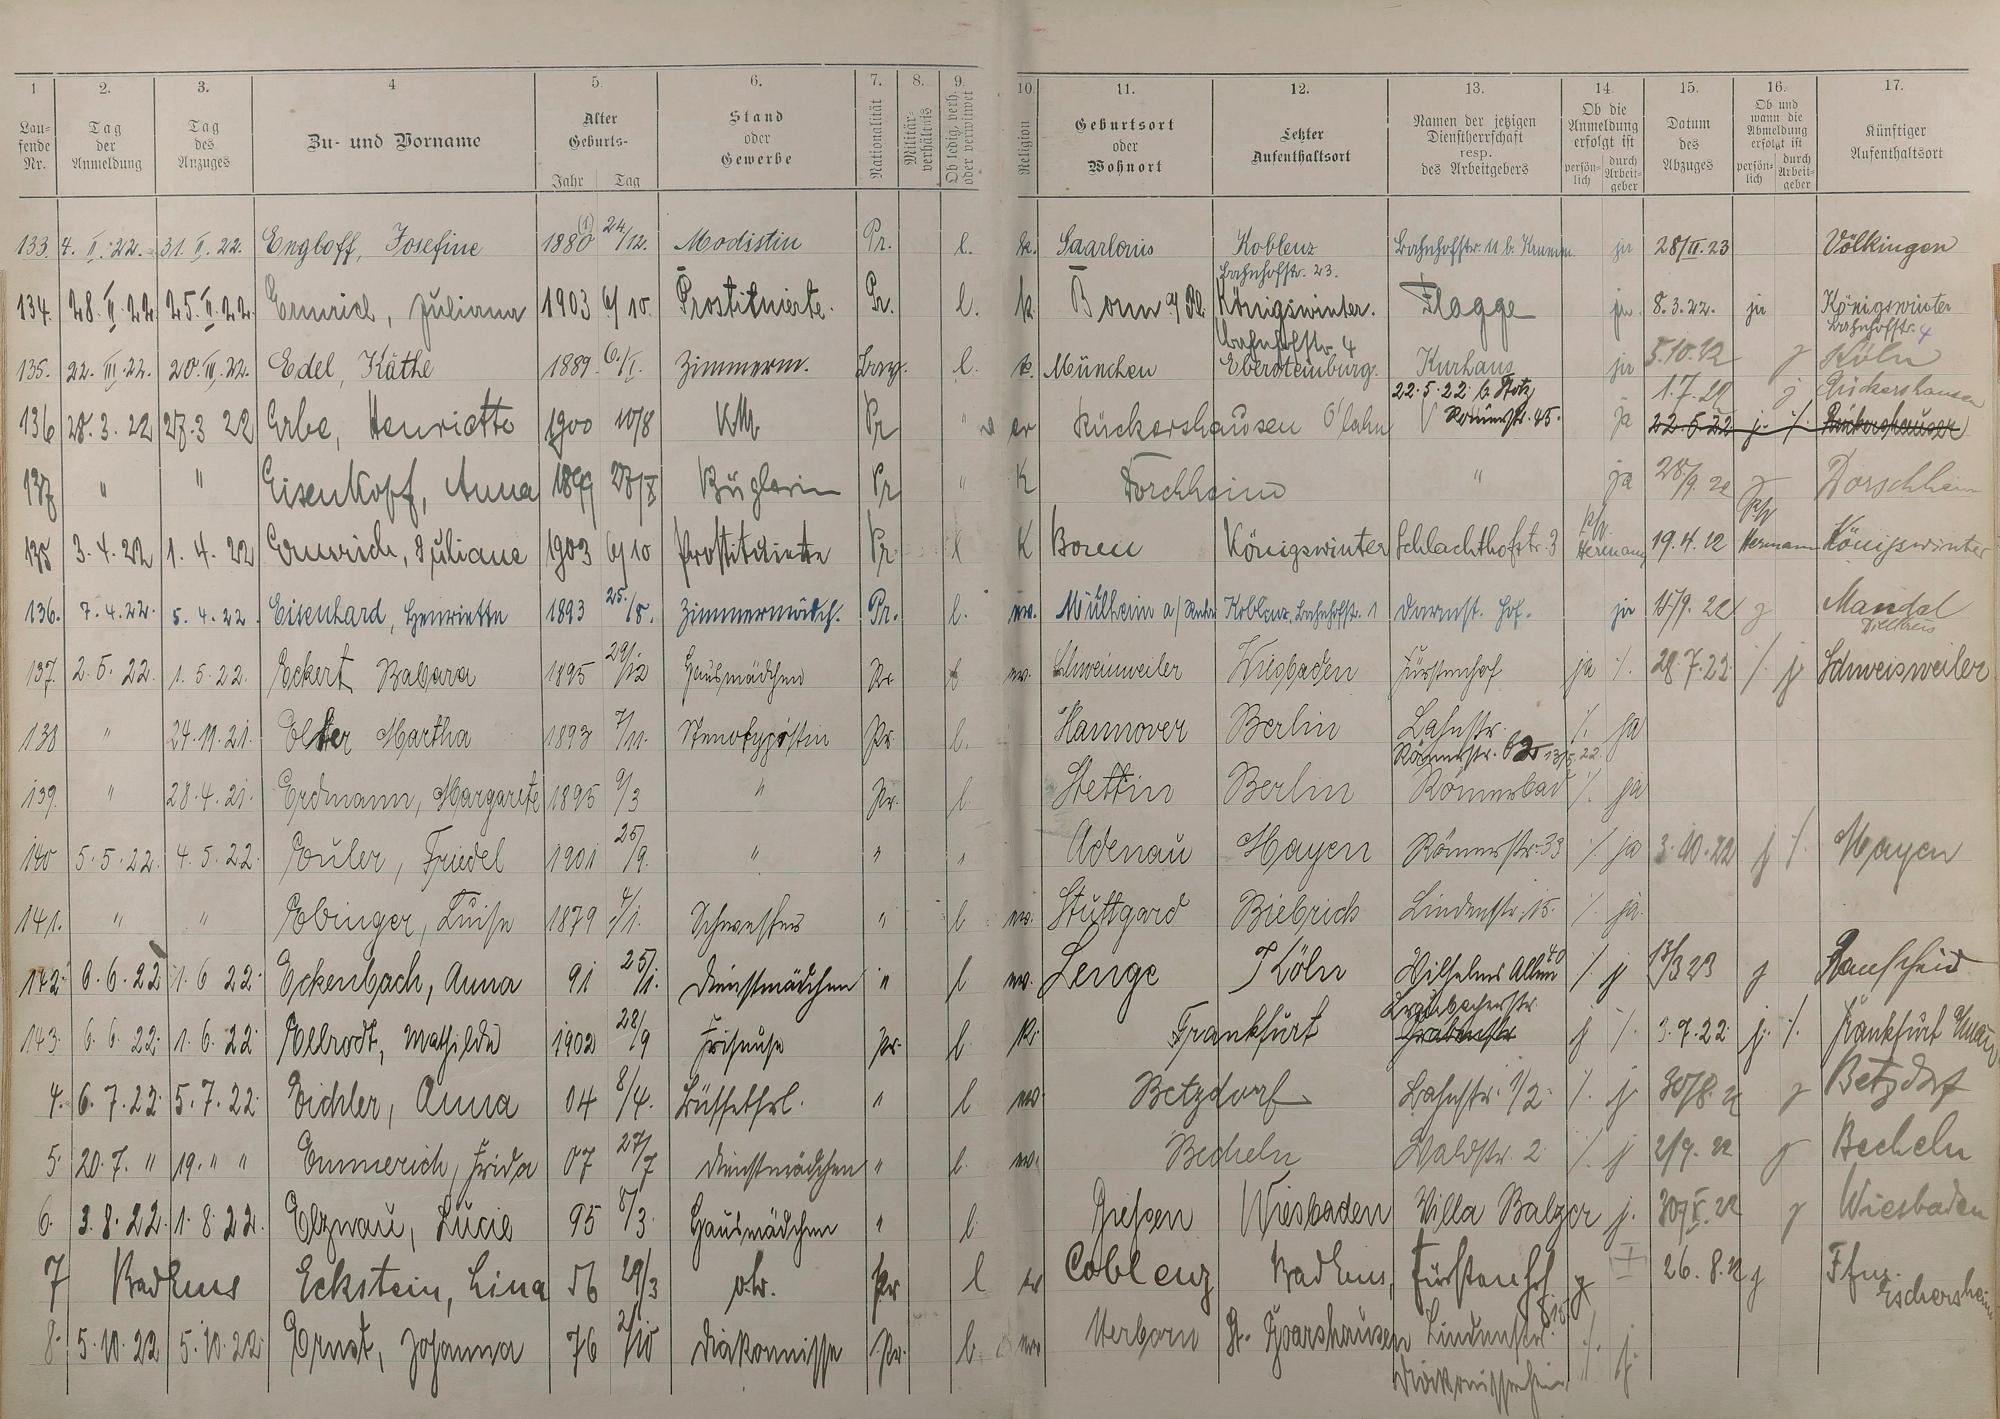 1 2. 3. 4 5. 6. 7. 8. 9. 10. 11. 12. 13. 14. 15. 16. 17.
Lau-
fende
Nr.
Tag
der
Anmeldung
Tag
des
Anzuges
Zu- und Vorname
Alter
Geburts-
Jahr Tag
Stand
oder
Gewerbe
Nationalität
Militär-
verhältnis
Ob ledig, verh.
oder verwitwet
Religion
Geburtsort
oder
Wohnort
Letzter
Aufenthaltsort
Namen der jetzigen
Dienstherrschaft
resp.
des Arbeitgebers
Ob die
Anmeldung
erfolgt ist
persön-
lich
durch
Arbeit-
geber
Datum
des
Abzuges
Ob und
wann die
Abmeldung
erfolgt ist
persön-
lich
durch
Arbeit-
geber
Künftiger
Aufenthaltsort
133. 4. II. 22. 31. II. 22. Engloff, Josefine 1880 (1) 24/12. Modistin Pr. l. k. Saarlouis Koblenz Bahnhofstr. 11 b. ja 28/II. 23 Völkingen
Bahnhofstr. 23.
134. 28. II. 22 25. II. 22. Emrich, Juliana 1903 6/10. Prostituierte. Pr. l. k. Bonn a/Rh. Königswinter. Flagge ja 8.3.22. ja Königswinter
Bahnhofstr. 4 Bahnhofstr. 4
135. 22. III. 22. 20. III. 22. Edel, Käthe 1889. 6./I. Zimmerm. Bay. l. k. München Ebersteinburg. Kurhaus ja 5.10.22 j Köln
22.5.22 b. 1.7.22 j Rückershausen
136 28. 3. 22 27. 3 22 Erbe, Henriette 1900 10/8 Pr " ev Rückershausen O'lahn Römerstr. 45. ja 22.5.22 j. /. Rückershausen
137 " " Eisenkopf, Anna 1899 Büglerin Pr " K Forchheim " ja 28/9. 22 j Dorschheim
135 3. 4. 22 1. 4. 22 Emrich, Juliane 1903 6/10 Prostituierte Pr K Königswinter Schlachthofstr. 3 Hermann 19.4.22 Hermann Königswinter
136. 7. 4. 22. 5. 4. 22 Eisenhard, Henriette 1893 25./8. Zimmermädch. Pr. l. ev. Mülheim a/Ruhr Koblenz, Bahnhofstr. 1 Darmst. Hof. ja 15/9. 22 j Mandel
Dillkreis
137. 2. 5. 22. 1. 5. 22. Eckert Babara 1895 29/12 Hausmädchen Pr ev. Schweinweiler Wiesbaden Fürstenhof ja /. 28.7.22 /. j Schweisweiler
138 " 24. 11. 21. Elster Martha 1893 7/11. Stenotypistin Pr. l. Hannover Berlin Lahnstr. /. ja
Römerstr. 62 13/5. 22
139. " 28. 4. 21. Erdmann, Margarete 1895 9/3 " Pr. l. Stettin Berlin Römerbad /. ja
140 5. 5. 22. 4. 5. 22. Euler, Friedel 1901 25/9. " " " Adenau Mayen Römerstr. 33 /. ja 3.10.22 j /. Mayen
141. " " Ebinger, Luise 1879 1/1. Schwester " l ev. Stuttgard Biebrich Lindenstr. 15. /. ja.
142. 6. 6. 22 1. 6 22. Eckenbach, Anna 91 25/1. Dienstmädchen " l ev. Lenge Köln Wilhelms Allee 40 /. j 13/3 23 j
143. 6. 6. 22. 1. 6. 22 Ellrodt, Mathilde 1902 28/9 Friseuse Pr. l. k. Frankfurt Grabenstr j /. 3.7.22 j. /. Frankfurt Main
4. 6. 7. 22. 5. 7. 22. Eichler, Anna 04 8/4. Büffetfrl. " l ev Betzdorf Lahnstr. 1/2. /. j. 30/8. 22 j Betzdorf
5. 20. 7. " 19. " " Emmerich, Frida 07 27/7 Dienstmädchen " l. ev. Becheln Waldstr. 2. /. j 2/9. 22 j Becheln
6. 3. 8. 22. 1. 8. 22. Elznau, Lucie 95 8/3. Hausmädchen " l. Giessen Wiesbaden Villa Balzer j. 22 j Wiesbaden
7 Bad Ems Eckstein, Lina 56 29/3 o. b. Pr l Coblenz Bad Ems, Fürstenhof j I 26. 8. 22 j Ffm.
Eschersheim
8. 5. 10. 22 5. 10. 22. Ernst, Johanna 76 2/10 Diakonisse Pr. l. ev Herborn St. Goarshausen Lindenstr. 15 /. j.
Diakonissenheim